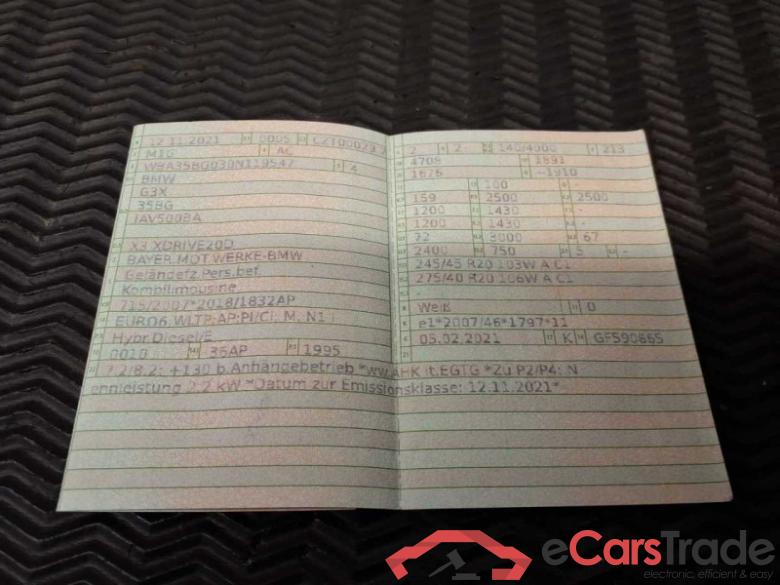 12.11.2021 0005 CZT00023
M1G AC
WBA35BG030N119547 4
BMW
G3X
35BG
IAV500BA
X3 XDRIVE20D
BAYER.MOT.WERKE-BMW
Geländefz.Pers.bef.
Kombilimousine
715/2007*2018/1832AP
EURO6,WLTP:AP:PI/CI; M, N1 I
Hybr.Diesel/E
0010 36AP 1995
7.2/8.2: +130 b.Anhängebetrieb *ww.AHK lt.EGTG *Zu P2/P4: N
ennleistung 2,2 kW *Datum zur Emissionsklasse: 12.11.2021*
2 2 140/4000 213
4708 1891
1676 -1910
100 -
159 2500 2500
1200 1430 -
1200 1430 -
72 3000 67
2400 750 5 -
245/45 R20 103W A C1
275/40 R20 106W A C1
-
Weiß 0
e1*2007/46*1797*11
05.02.2021 K GF590665
eCarsTrade
electronic, efficient & easy